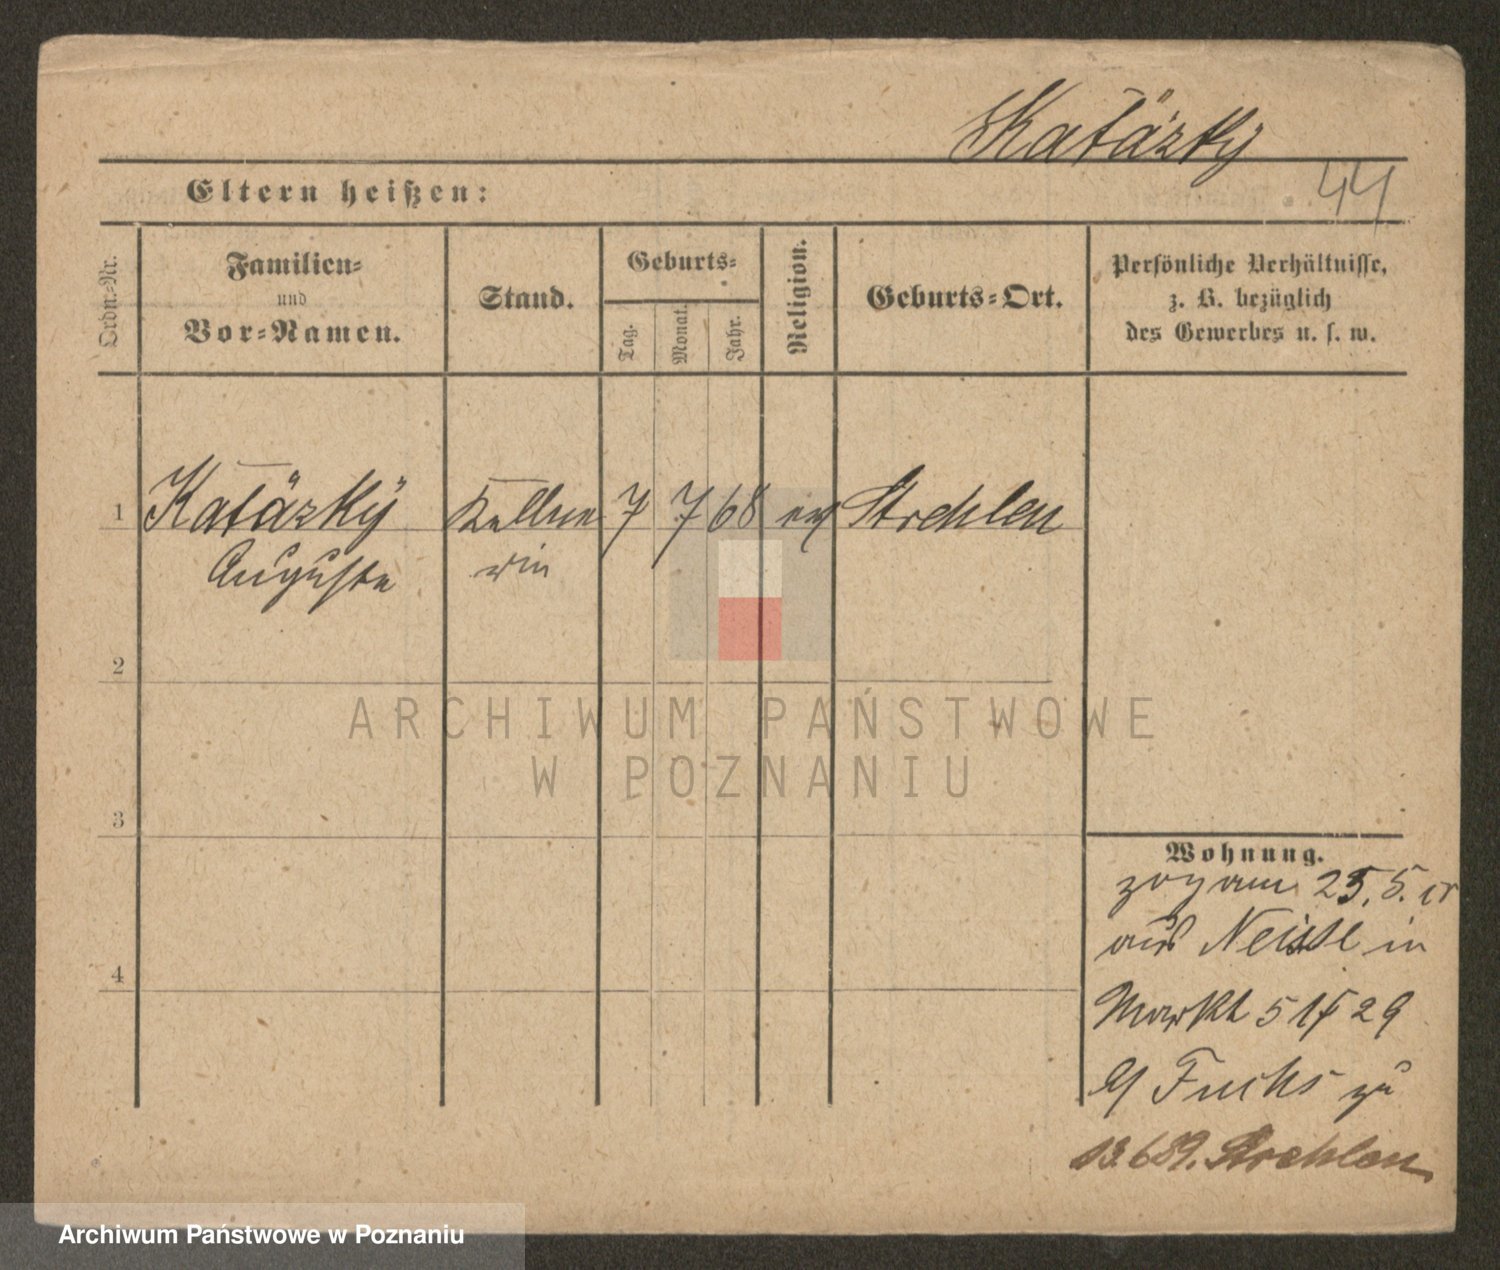 Katäzky
Eltern heißen:
44
Ordn.-Nr.
Familien-
und
Vor-Namen.
Stand.
Geburts-
Tag.
Monat.
Jahr.
Religion.
Geburts-Ort.
Persönliche Verhältnisse,
z. B. bezüglich
des Gewerbes u. s. w.
1 Katäzky Kellne 7 7 68 ev Strehlen
Auguste rin
2
3
4
Wohnung.
zog am 25. 5. cr
aus Neisse in
Markt 51 29
Fuchs zu
13.6.89. Strehlen
ARCHIWUM PAŃSTWOWE
W POZNANIU
Archiwum Państwowe w Poznaniu